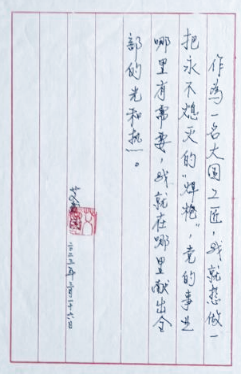 作为一名大国工匠,我就想做一
把永不熄灭的“焊枪”,党的事业
哪里有需要,我就在哪里献出全
部的光和热。
艾爱国
二〇二三年